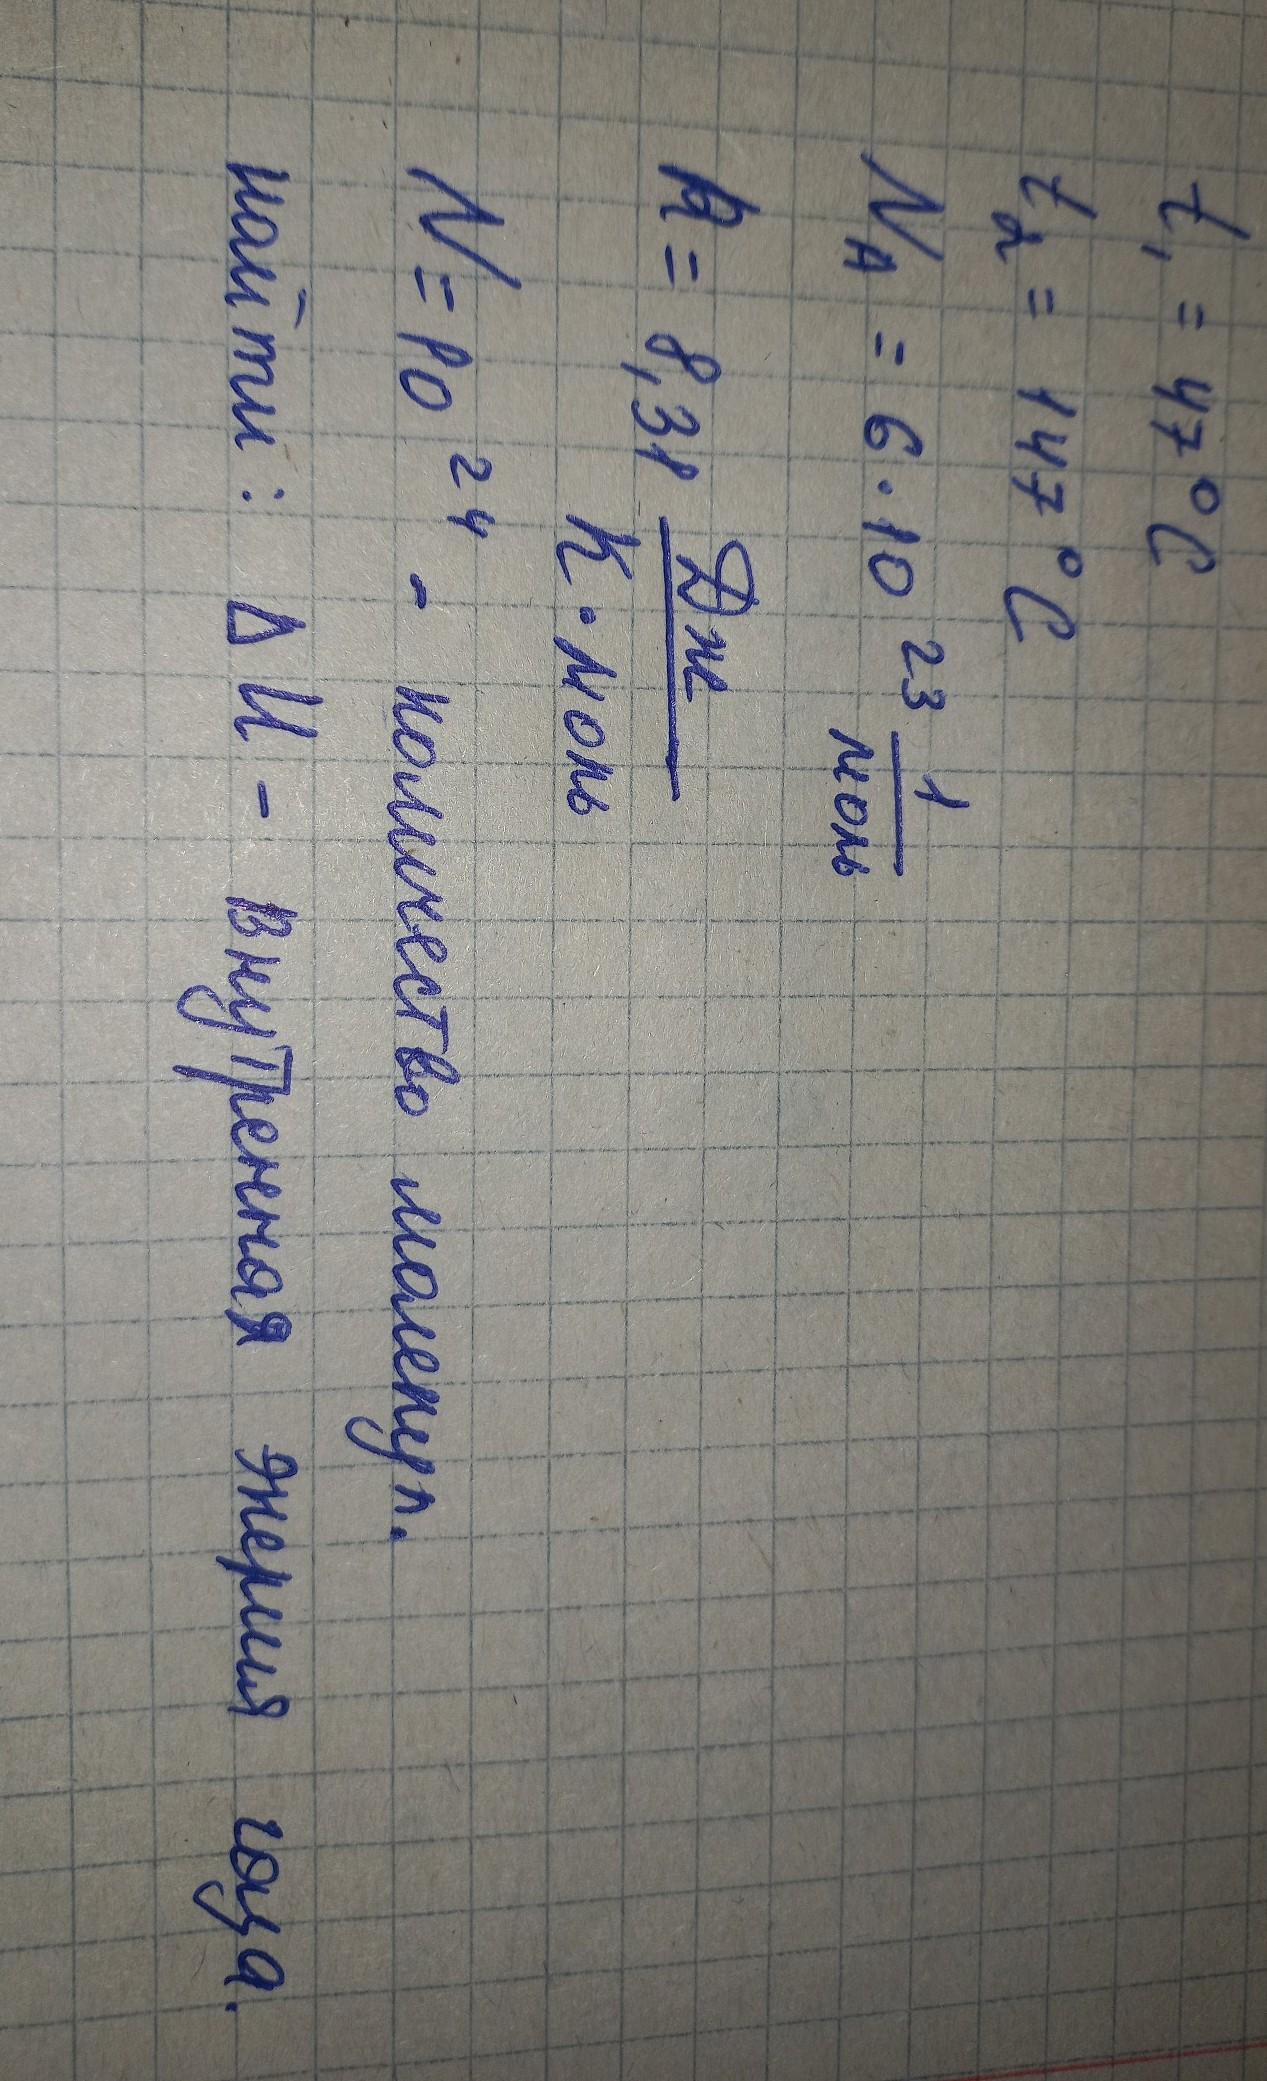 t₁ = 47°C
t₂ = 147°C
N_A = 6·10²³ 1/моль
R = 8,31 Дж/К·моль
N = 10²⁴ - количество малекул.
найти: ΔU - внутренняя энергия газа.